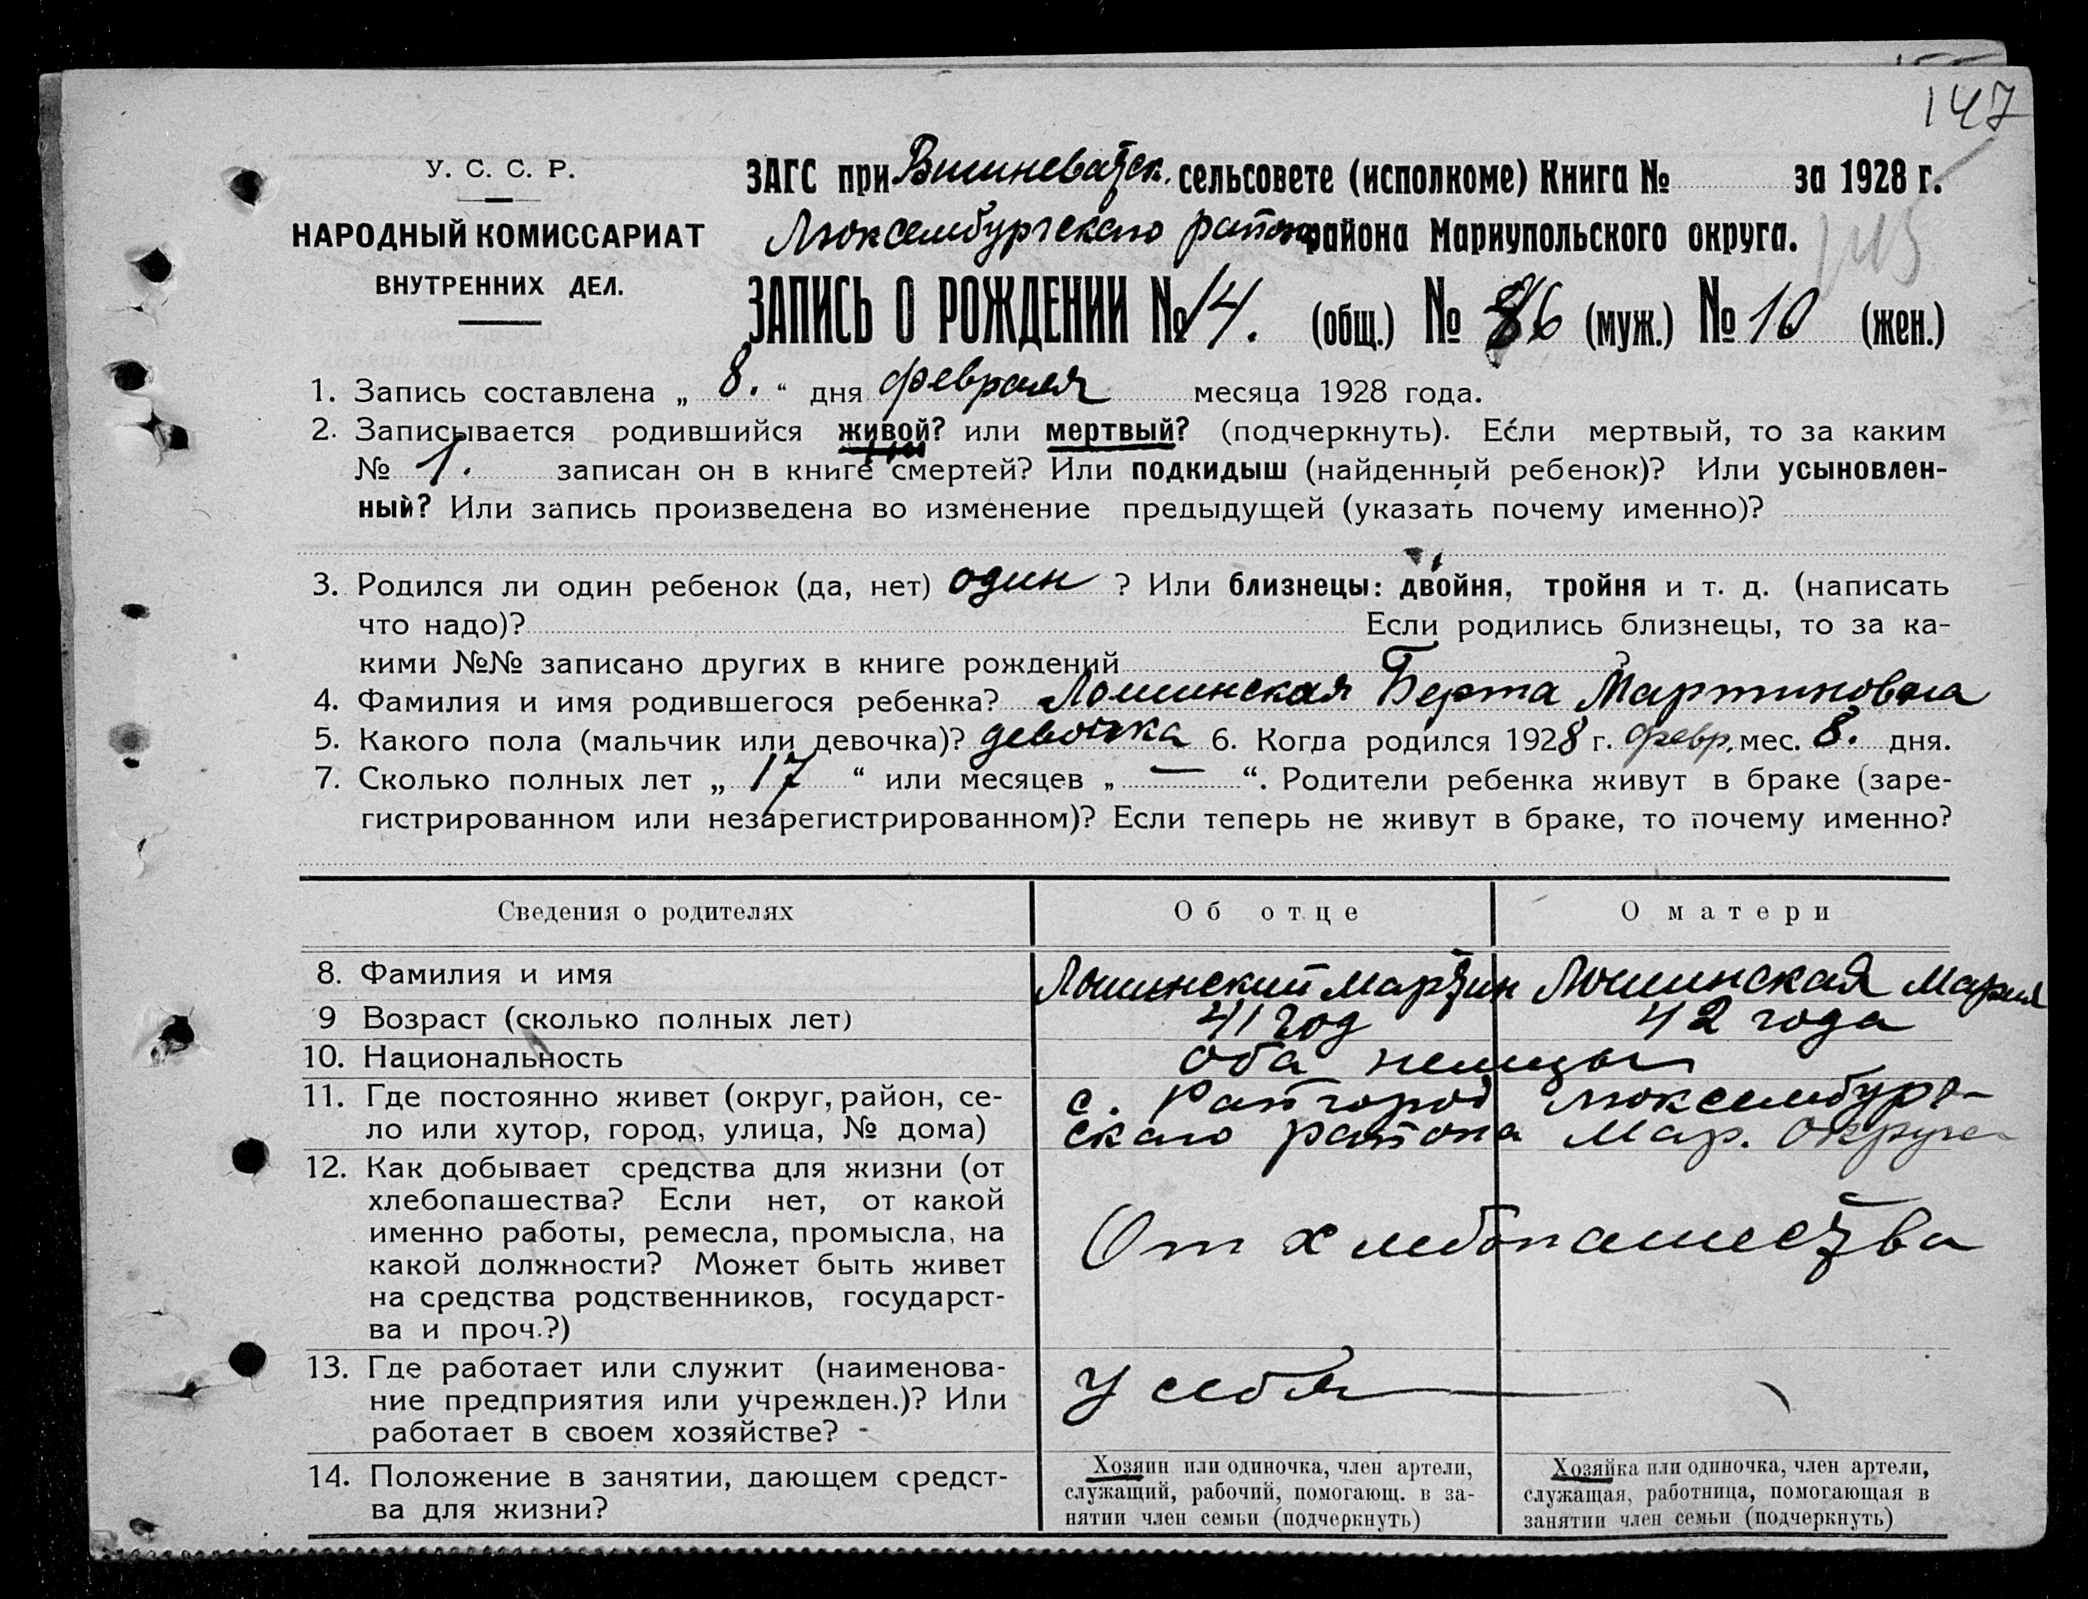 147
У. С. С. Р.
НАРОДНЫЙ КОМИССАРИАТ
ВНУТРЕННИХ ДЕЛ.
ЗАГС при Вишневатск. сельсовете (исполкоме) Книга № за 1928 г.
Люксембургского района района Мариупольского округа.
145
ЗАПИСЬ О РОЖДЕНИИ № 14. (общ.) № 6 (муж.) № 10 (жен.)
1. Запись составлена „ 8. “ дня февраля месяца 1928 года.
2. Записывается родившийся живой? или мертвый? (подчеркнуть). Если мертвый, то за каким
№ 1. записан он в книге смертей? Или подкидыш (найденный ребенок)? Или усыновлен-
ный? Или запись произведена во изменение предыдущей (указать почему именно)?
3. Родился ли один ребенок (да, нет) один ? Или близнецы: двойня, тройня и т. д. (написать
что надо)? Если родились близнецы, то за ка-
кими №№ записано других в книге рождений ?
4. Фамилия и имя родившегося ребенка? Лошинская Берта Мартиновна
5. Какого пола (мальчик или девочка)? девочка 6. Когда родился 1928 г. февр. мес. 8. дня.
7. Сколько полных лет „ 17 “ или месяцев „ — “. Родители ребенка живут в браке (заре-
гистрированном или незарегистрированном)? Если теперь не живут в браке, то почему именно?
Сведения о родителях Об отце О матери
8. Фамилия и имя Лошинский Мартин Лошинская Мария
9 Возраст (сколько полных лет) 41 год 42 года
10. Национальность оба немцы
11. Где постоянно живет (округ, район, се- с. Райгород Люксембург-
ло или хутор, город, улица, № дома) ского района Мар. Округа
12. Как добывает средства для жизни (от
хлебопашества? Если нет, от какой
именно работы, ремесла, промысла, на От хлебопашества
какой должности? Может быть живет
на средства родственников, государст-
ва и проч.?)
13. Где работает или служит (наименова-
ние предприятия или учрежден.)? Или У себя
работает в своем хозяйстве? -
14. Положение в занятии, дающем средст-
ва для жизни?
Хозяин или одиночка, член артели,
служащий, рабочий, помогающ. в за-
нятии член семьи (подчеркнуть)
Хозяйка или одиночка, член артели,
служащая, работница, помогающая в
занятии член семьи (подчеркнуть)